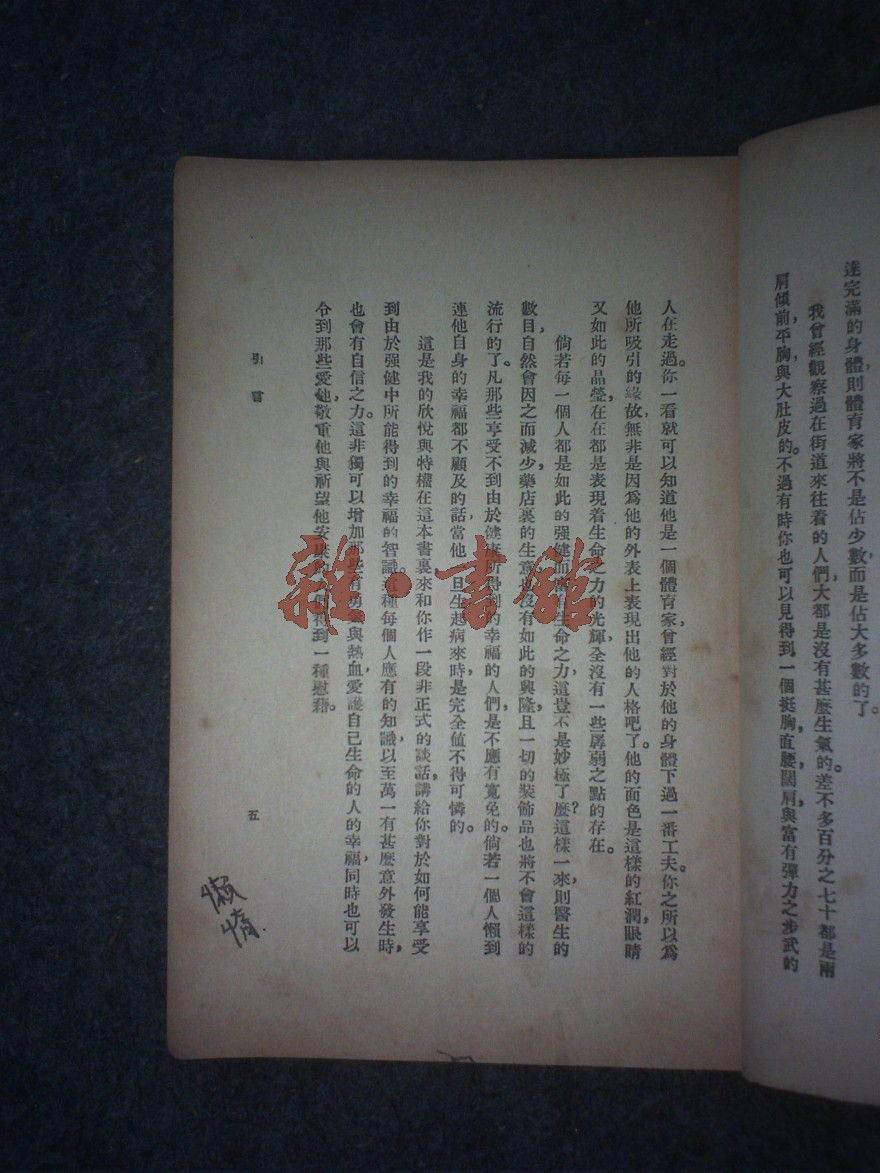 達完滿的身體，則體育家將不是佔少數而是佔大多數的了。
我曾經觀察過在街道來往着的人們，大都是沒有甚麼生氣的。差不多百分之七十都是兩
肩傾前，平胸，與大肚皮的。不過有時你也可以見得到一個挺胸，直腰，闊肩，與富有彈力之步武的
人在走過。你一看就可以知道他是一個體育家，曾經對於他的身體下過一番工夫。你之所以爲
他所吸引的緣故，無非是因爲他的外表上表現出他的人格吧了。他的面色是這樣的紅潤，眼睛
又如此的晶瑩，在在都是表現着生命之力的光輝，全沒有一些孱弱之點的存在。
倘若每一個人都是如此的强健而富有生命之力，這豈不是妙極了麼？這樣一來，則醫生的
數目，自然會因之而減少，藥店裏的生意也沒有如此的興隆，且一切的裝飾品也將不會這樣的
流行的了。凡那些享受不到由於健康所得到的幸福的人們，是不應有寬免的。倘若一個人懶到
連他自身的幸福都不顧及的話，當他一旦生起病來時，是完全值不得可憐的。
這是我的欣悅與特權在這本書裏來和你作一段非正式的談話，講給你對於如何能享受
到由於强健中所能得到的幸福的智識。這種每個人應有的知識，以至萬一有甚麼意外發生時，
也會有自信之力。這非獨可以增加那些有勇氣與熱血，愛護自己生命的人的幸福，同時也可以
令到那些愛他，敬重他與祈望他安康的人們得到一種慰藉。
引言
五
雜·書館